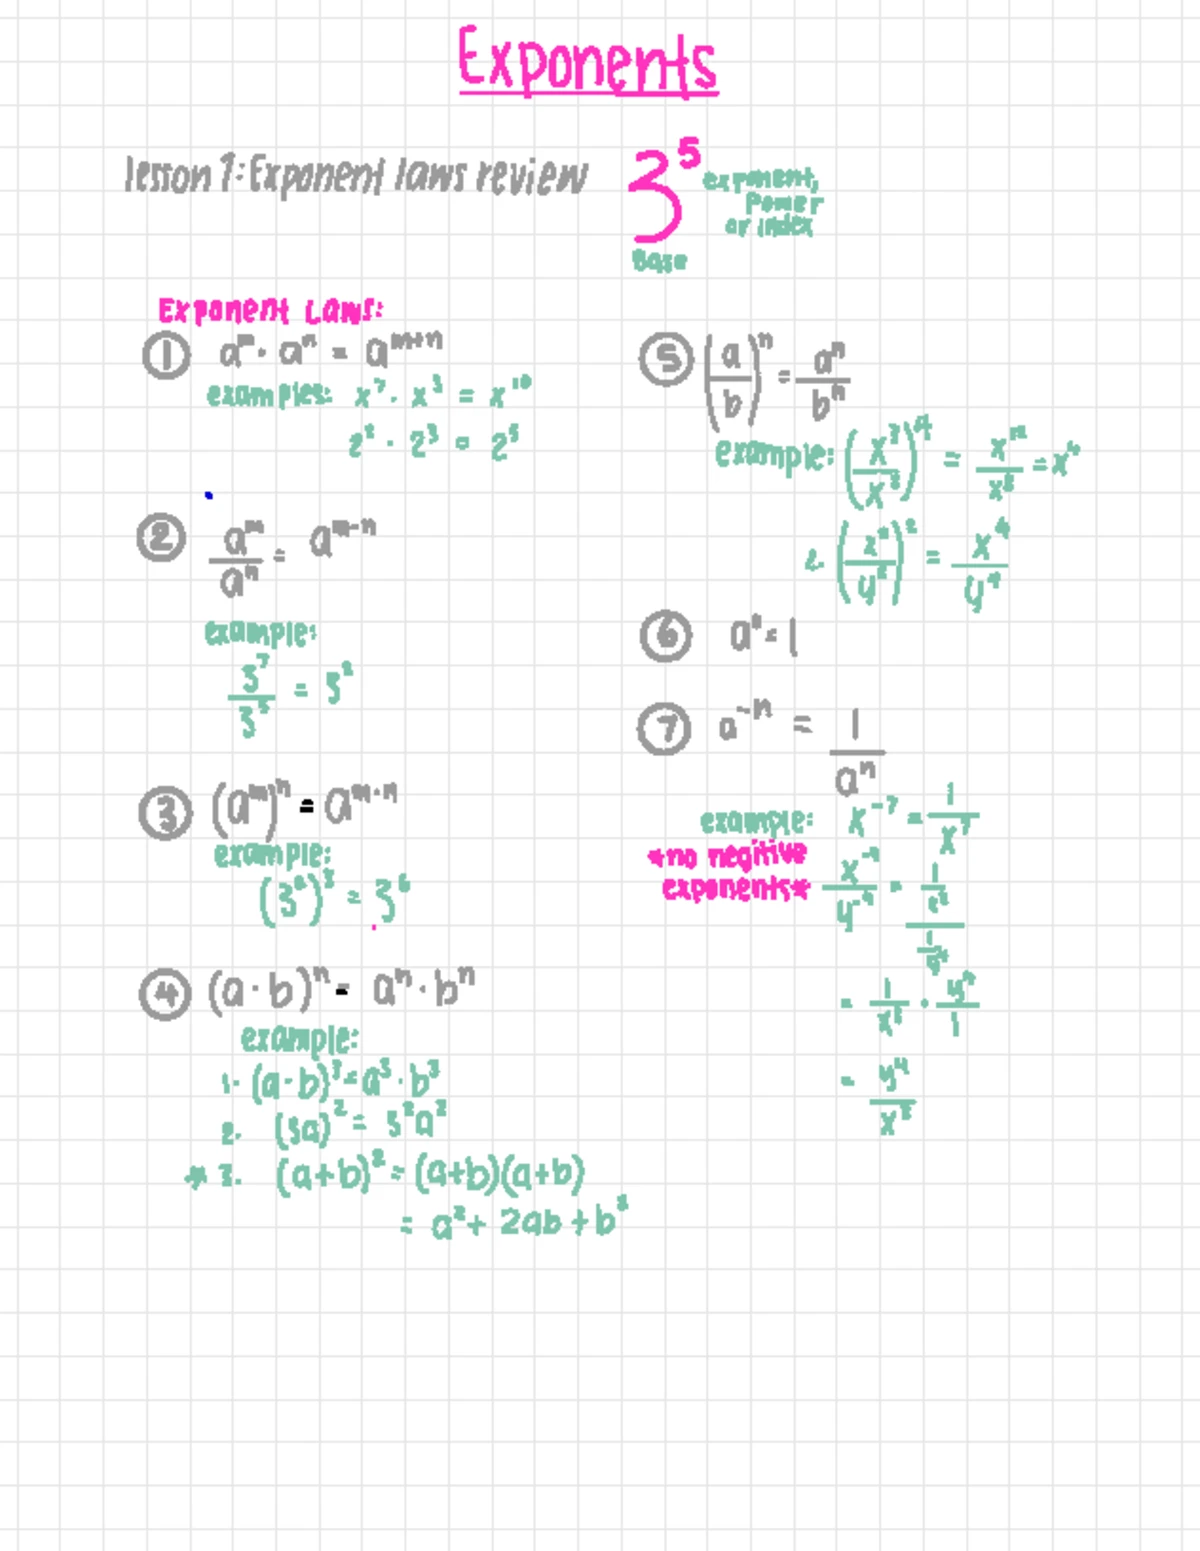 Exponents
lesson 1: Exponent laws review
3⁵ exponent,
Power
or index
Base
Exponent Laws:
① aᵐ · aⁿ = aᵐ⁺ⁿ
examples: x⁷ · x³ = x¹⁰
2² · 2³ = 2⁵
② aᵐ/aⁿ = aᵐ⁻ⁿ
example:
3⁷/3⁵ = 3²
③ (aᵐ)ⁿ = aᵐ·ⁿ
example:
(3²)³ = 3⁶
④ (a · b)ⁿ = aⁿ · bⁿ
example:
1. (a · b)³ = a³ · b³
2. (5a)² = 5²a²
* 3. (a+b)² = (a+b)(a+b)
= a² + 2ab + b²
⑤ (a/b)ⁿ = aⁿ/bⁿ
example: (x³/x²)⁴ = x¹²/x⁸ = x⁴
2. (x²/y²)² = x⁴/y⁴
⑥ a⁰ = 1
⑦ a⁻ⁿ = 1/aⁿ
example: x⁻⁷ = 1/x⁷
*no negitive
exponents*
= y⁴